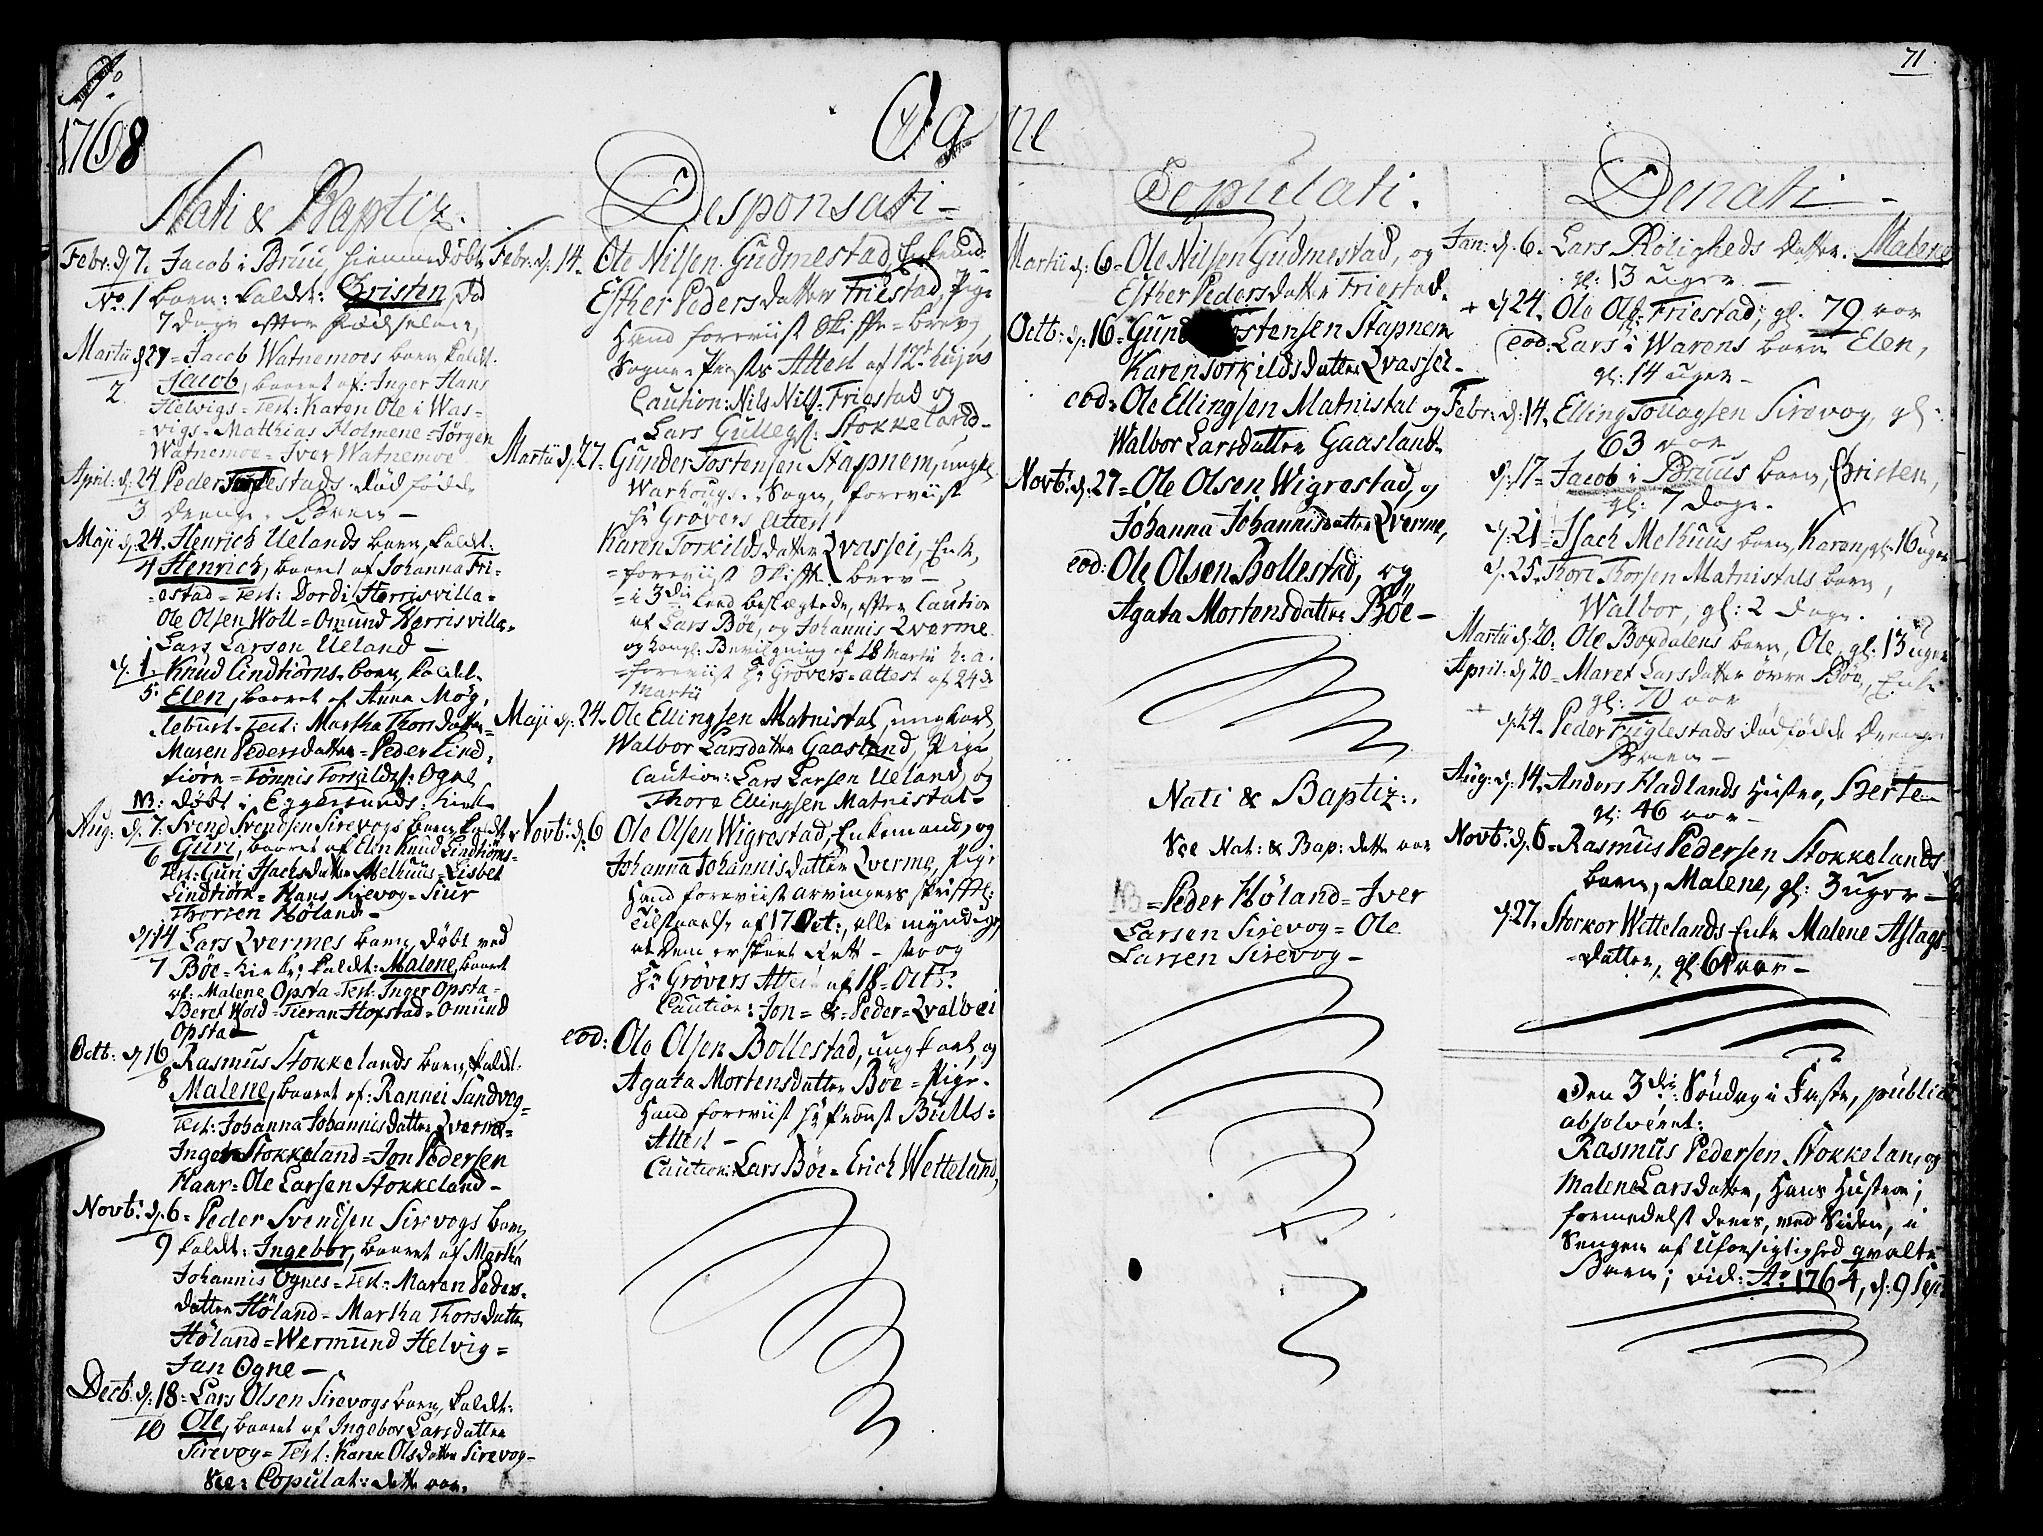 71
Aº
1768
Ogne
Nati & Baptiz.
Febr: d. 7. Jacob i Bruu hiemmedøbt
No. 1 barn: kaldt: Christen, død
7 dage efter Fødselen,
Martii d. 27 = Jacob Watnemoes barn kaldt.
2 Jacob, baaret af: Inger Hans
Helvigs = Test: Karen Ole i Was=
vigs = Matthias Holmene = Jørgen
Watnemoe = Iver Watnemoe
April: d. 24. Peder Fuglestads død fødde
3 Drenge Barn —
Maji d. 24. Henrich Uelands barn, kaldt:
4 Henrich, baaret af Johanna Fri=
estad = Test: Dordi Herrisvilla=
Ole Olsen Woll = Omund Herrisvilla=
Lars Larsen Ueland —
d. 1. Knud Lindtiørns barn, kaldt.
5. Elen, baaret af Anna Mög=
lebust = Test: Martha Thorsdatter=
Maren Pedersdatter = Peder Lind=
tiørn = Tönnis Torkildss: Ogne
NB: døbt i Eggersunds: kirk
Aug: d. 7: Svend Svendsen Sirevogs barn, kaldt
6 Guri, baaret af Elen Knud Lindtiörns=
Test: Guri Isachsdatter Melhuus = Lisbet
Lindtiörn = Hans Sirevog = Siur
Thorsen Höland —
d. 14 Lars Qvermes barn, døbt ved
7 Böe = kirke; kaldt: Malene, baaret
af: Malene Opsta = Test: Inger Opsta=
Beret Wold = Tieran Hofstad = Omund
Opstad
Octb: d. 16 Rasmus Stokkelands barn, kaldt.
8 Malene, baaret af: Rannei Sandvog=
Test: Johanna Johannisdatter Qverme=
Inger Stokkeland = Jon Pedersen
Haar = Ole Larsen Stokkeland —
Novb: d. 6 = Peder Svendsen Sirevogs barn
9 kaldt: Ingebor, baaret af Martha
Johannis Ognes = Test: Maren Peders=
datter Höland = Martha Thorsdatter
Höland = Wermund Helvig =
Jan Ogne —
Decb: d. 18 = Lars Olsen Sirevogs barn, kaldt:
10 Ole, baaret af Ingebor Larsdatter
Sirevog = Test: Karen Olsdatter Sirevog —
See: Copulat: dette aar.
Desponsati —
Febr: d. 14. Ole Nilsen Gudmestad, Enkemd:
Esther Pedersdatter Friestad, Pige
Hand foreviist Skifte = brev,
Sogne = Præsts Attest af 12te hujus
Caution: Nils Nilss: Friestad og
Lars Gullegss: Stokkeland —
Martii d. 27. Gunder Tostensen Stapnem, ungkl
Warhougs Sogn, foreviist
Hr Grövers Attest
Karen Torkildsdatter Qvassei, Enke,
= foreviist Skifte brev —
= i 3die Leed beslægtede, efter Caution
af Lars Böe, og Johannis Qverme
og kongl: Bevilgning af 18 Martii h: a.
= foreviist Hr Grövers = attest af 24de
Martii
Maji d. 24. Ole Ellingsen Matnistal, ungkarl
Walbor Larsdatter Gaasland, Pige
Caution: Lars Larsen Ueland, og
Thore Ellingsen Matnistal —
Novb: d. 6 Ole Olsen Wigrestad, Enkemand, og
Johanna Johannisdatter Qverme, Pige
Hand foreviist arvingers skriftl:
Tilstaaelse af 17 Oct:, alle myndige,
at dem er skeet Rett — saa og
Hr Grövers Attest af 18 Octb:
Caution: Jon = & = Peder = Qvalbei
eod: Ole Olsen Bollestad, ungkarl, og
Agata Mortensdatter Böe = Pige.
Hand foreviist Hr Provst Bulls=
Attest —
Caution: Lars Böe = Erich Wetteland,
Copulati.
Martii d: 6 = Ole Nilsen Gudmestad, og
Esther Pedersdatter Friestad.
Octb: d: 16 = Gund Tostensen Stapnem
Karen Torkildsdatter Qvassei —
eod = Ole Ellingsen Matnistal og
Walbor Larsdatter Gaasland.
Novb: d: 27 = Ole Olsen Wigrestad, og
Johanna Johannisdatter Qverme,
eod: Ole Olsen Bollestad, og
Agata Mortensdatter Böe —
Nati & Baptiz:.
See Nat: & Bap: dette aar
NB = Peder Höland = Iver
Larsen Sirevog = Ole
Larsen Sirevog —
Denati —
Jan: d. 6. Lars Roligheds Datter. Malene
gl: 13 uger —
+ d. 24. Ole Ols: Friestad, gl. 79 aar
eod: Lars i Warens barn Elen,
gl: 14 uger —
Febr: d: 14. Elling Tollagsen Sirevog, gl:
63 aar
d: 17 = Jacob i Bruus barn, Christen,
gl: 7 dage.
d: 21 = Isach Melhuus barn, Karen, gl: 16 uger
d. 25. Thore Thorsen Matnistals barn,
Walbor, gl: 2 dage.
Martii d: 20. Ole Bogdalens barn, Ole, gl: 13 uger
April: d: 20 = Maret Larsdatter övre Böe, Enke
gl: 70 aar
+ d: 24. Peder Fuglestads dødfødde Drenge
Barn —
Aug: d: 14. Anders Hadlands Hustroe, Berte
gl: 46 aar —
Novb: d: 6 = Rasmus Pedersen Stokkelands
barn, Malene, gl: 3 uger —
d: 27. Storkor Wettelands Enke Malene Aslags=
= datter, gl: 61 aar —
Den 3die: Söndag i Faste, public
absolveret:
Rasmus Pedersen Stokkelan, og
Malene Larsdatter, Hans Hustroe;
formedelst deres, ved Siden, i
Sengen af Uforsigtighed qvalte
Barn; vid: Aº 1764, d: 9 Sept